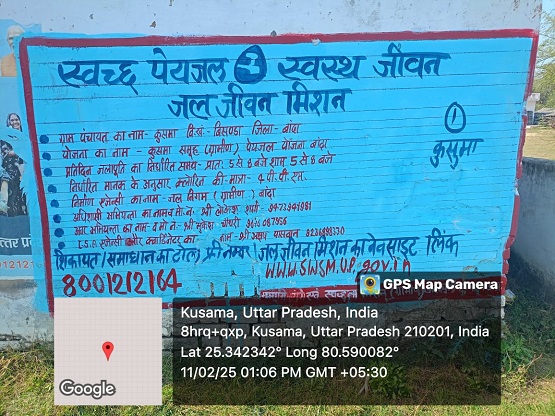 स्वच्छ पेयजल स्वस्थ जीवन
जल जीवन मिशन
① कुसुमा
ग्राम पंचायत का नाम- कुसमा वि०ख०- बिसण्डा जिला- बाँदा
योजना का नाम - कुसमा समूह (ग्रामीण) पेयजल योजना बाँदा
प्रतिदिन जलापूर्ति का निर्धारित समय- प्रातः 5 से 8 बजे शाम 5 से 8 बजे
निर्धारित मानक के अनुसार क्लोरिन की मात्रा- 4 पी.पी.एम.
निर्माण एजेन्सी का नाम- जल निगम (ग्रामीण) बाँदा
अधिशासी अभियन्ता का नाम व मो.नं.- श्री
अभियन्ता का नाम व मो नं.- श्री मुकेश
I.S.A एजेन्सी
शिकायत/समाधान का टोल फ्री नम्बर
18001212164
जल जीवन मिशन का वेबसाइट लिंक
WWW.SWSM.UP.gov.in
त्तर प्र
01212
GPS Map Camera
Kusama, Uttar Pradesh, India
8hrq+qxp, Kusama, Uttar Pradesh 210201, India
Lat 25.342342° Long 80.590082°
11/02/25 01:06 PM GMT +05:30
Google